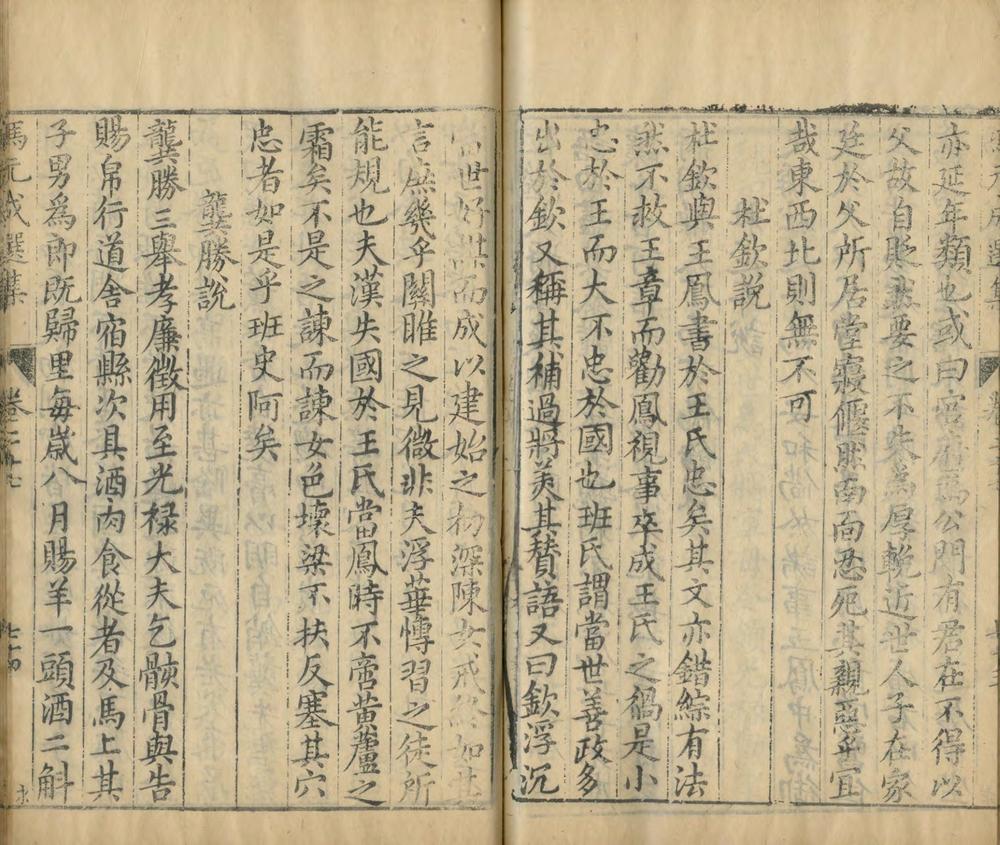 亦延年類也或曰官舍為公門有君在不得以
父故自貶然要之不失為厚輓近世人子在家
廷於父所居堂寢偃然南面忍死其親惡乎宜
哉東西北則無不可
杜欽説
杜欽與王鳳書於王氏忠矣其文亦錯綜有法
然不救王章而勸鳳視事卒成王氏之禍是小
忠於王而大不忠於國也班氏謂當世善政多
出於欽又稱其補過將美其賛語又曰欽浮沉
當世好謀而成以建始之初深陳女戒終如其
言庶幾乎關雎之見微非夫浮華慱習之徒所
能規也夫漢失國於王氏當鳳時不啻黃蘆之
霜矣不是之諫而諫女色壞梁不扶反塞其穴
忠者如是乎班史阿矣
龔勝説
龔勝三舉孝廉徵用至光禄大夫乞骸骨與告
賜帛行道舍宿縣次具酒肉食從者及馬上其
子男為郎既歸里每歲八月賜羊一頭酒二斛
馮元成選集
卷二十七
七十四